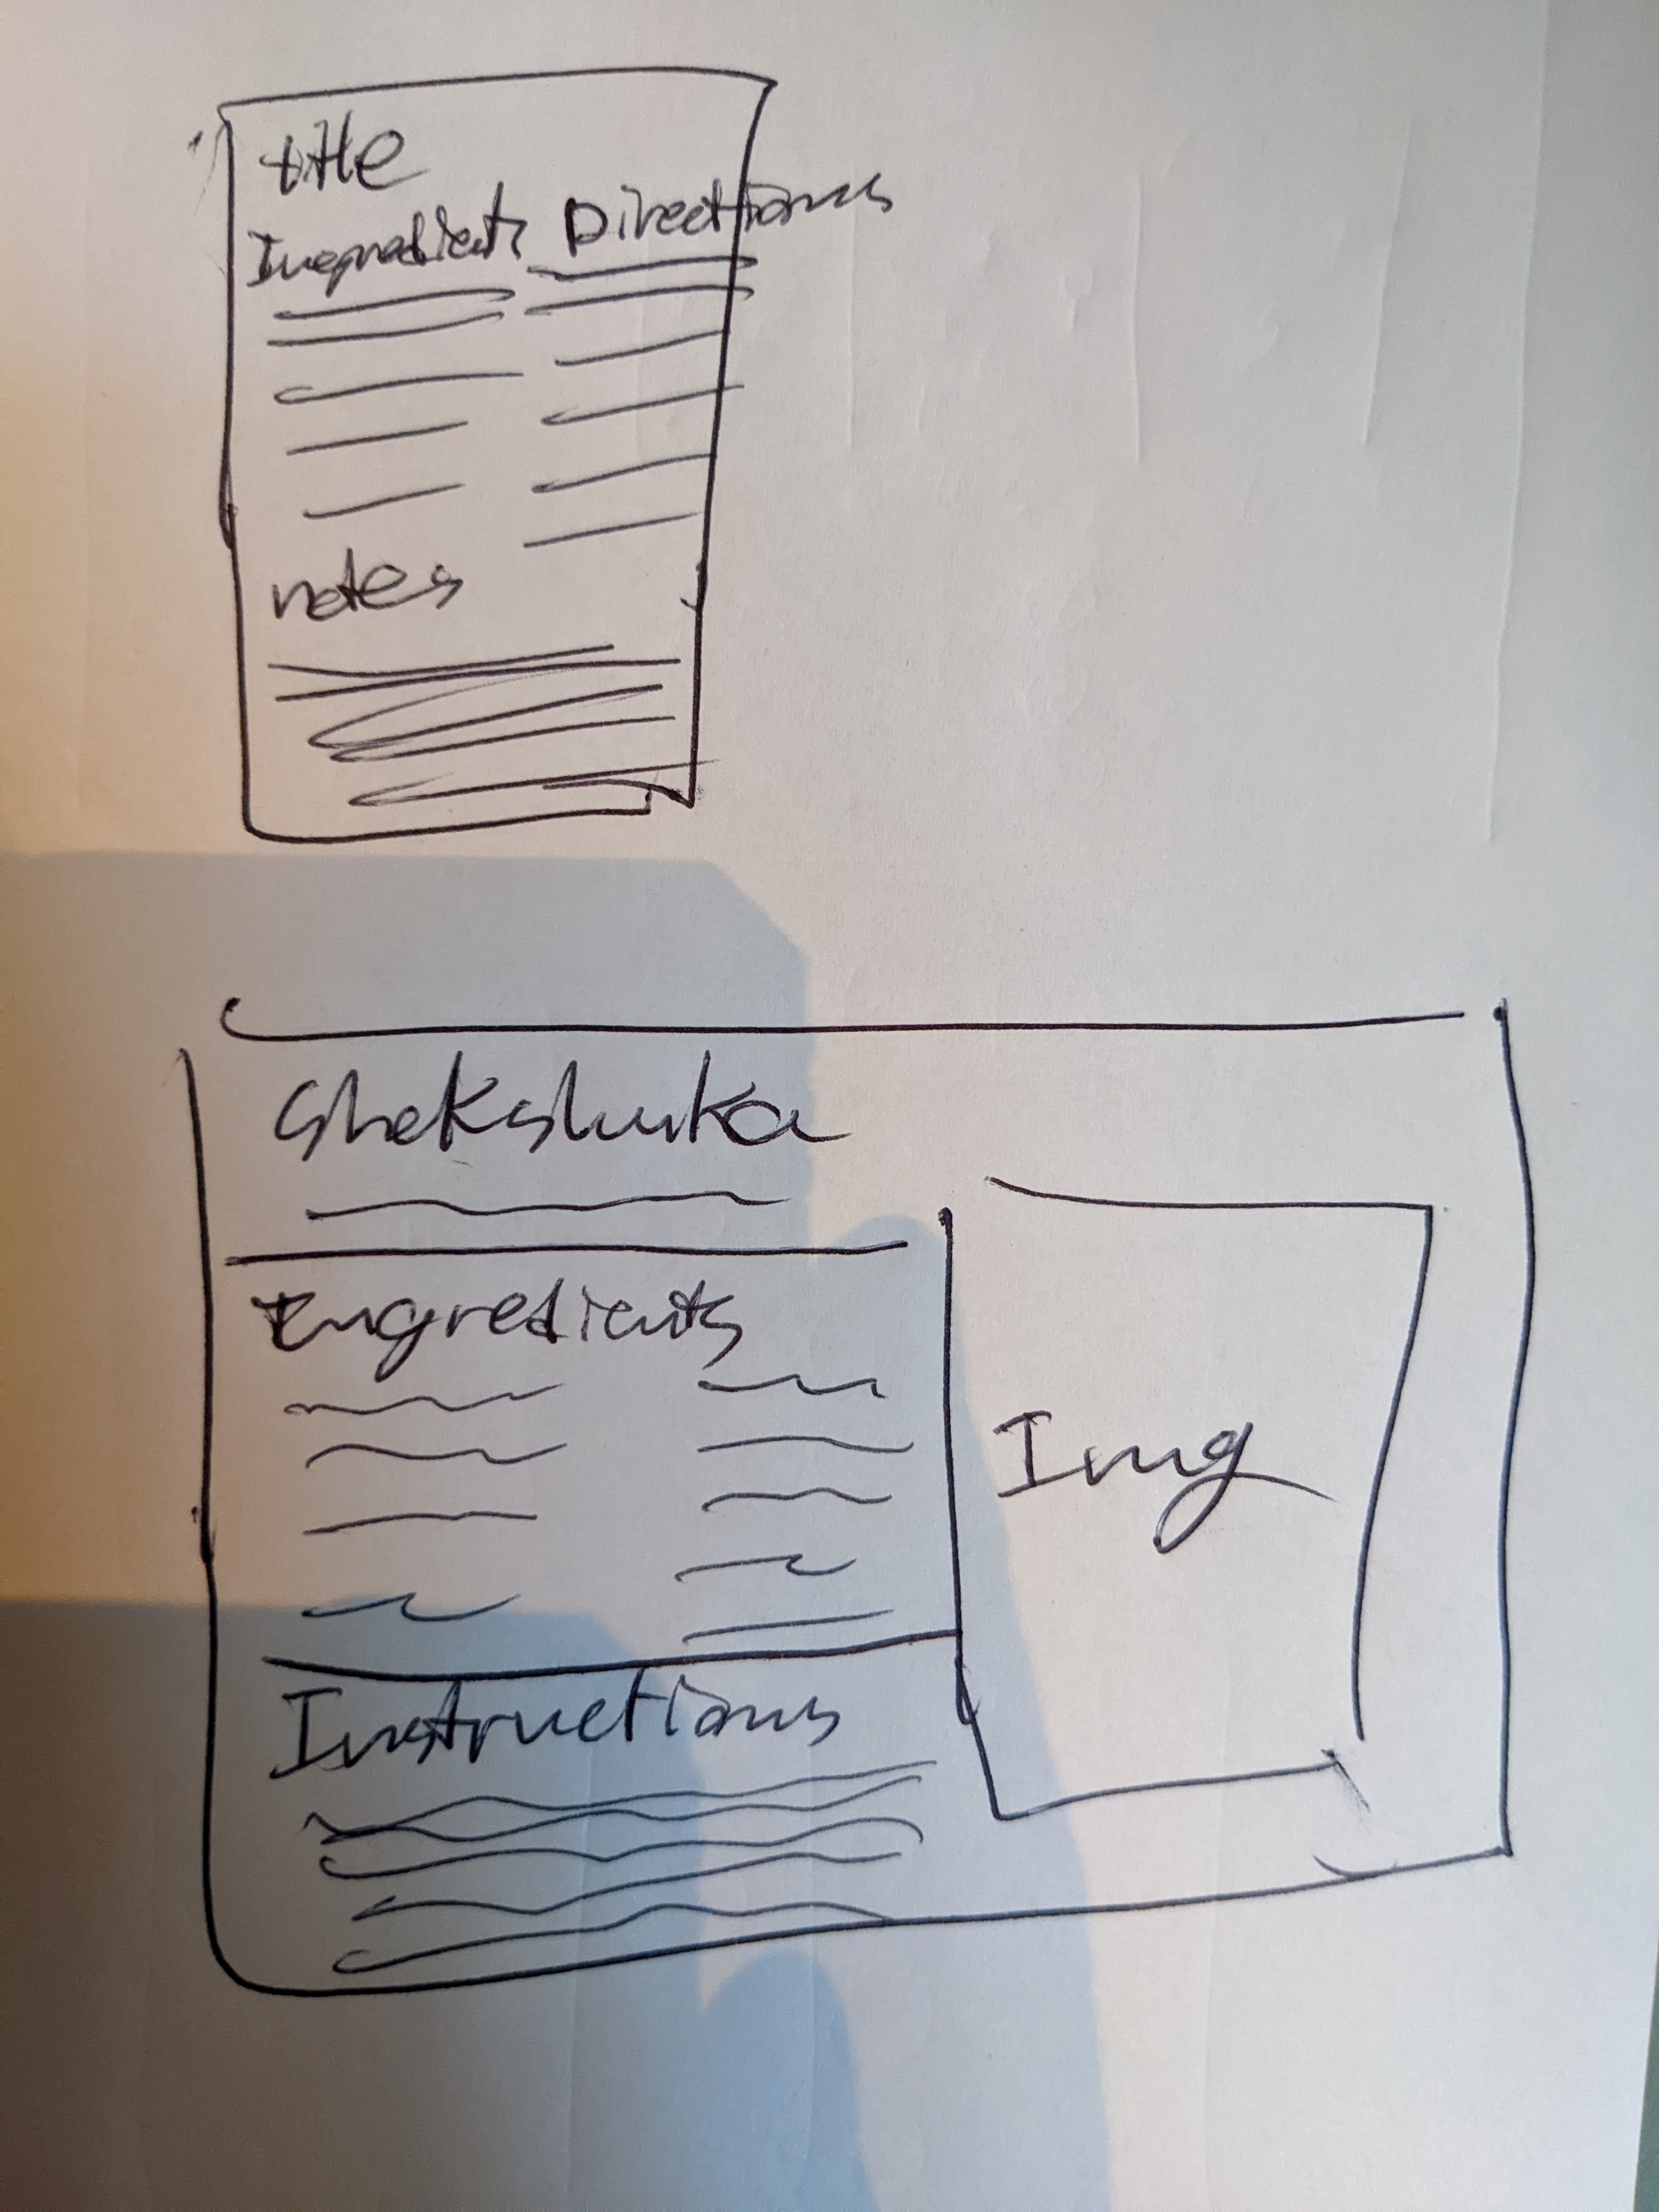 title
Ingredients Directions
notes
Shakshuka
Ingredients
Img
Instructions